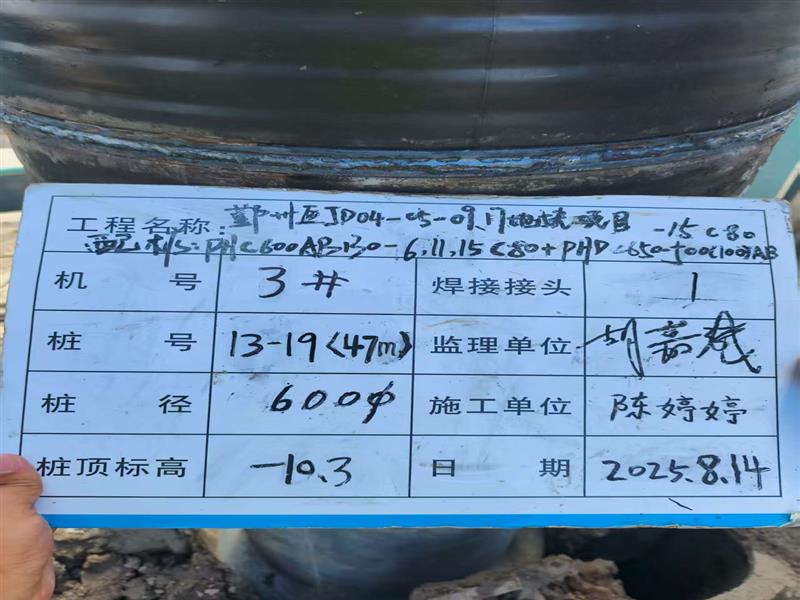 工程名称: 鄞州区JD04-05-09,17地块项目
配桩: PHC600AB130-6,11,15C80+PHD-650-500(100)AB -15C80
机号 3# 焊接接头 1
桩号 13-19(47m) 监理单位 胡嘉斌
桩径 600φ 施工单位 陈婷婷
桩顶标高 -10.3 日期 2025.8.14